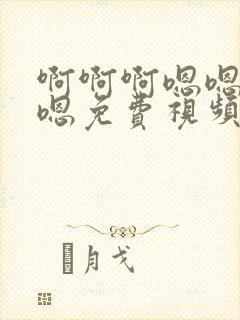 啊啊啊嗯嗯
嗯免費視頻
月戈